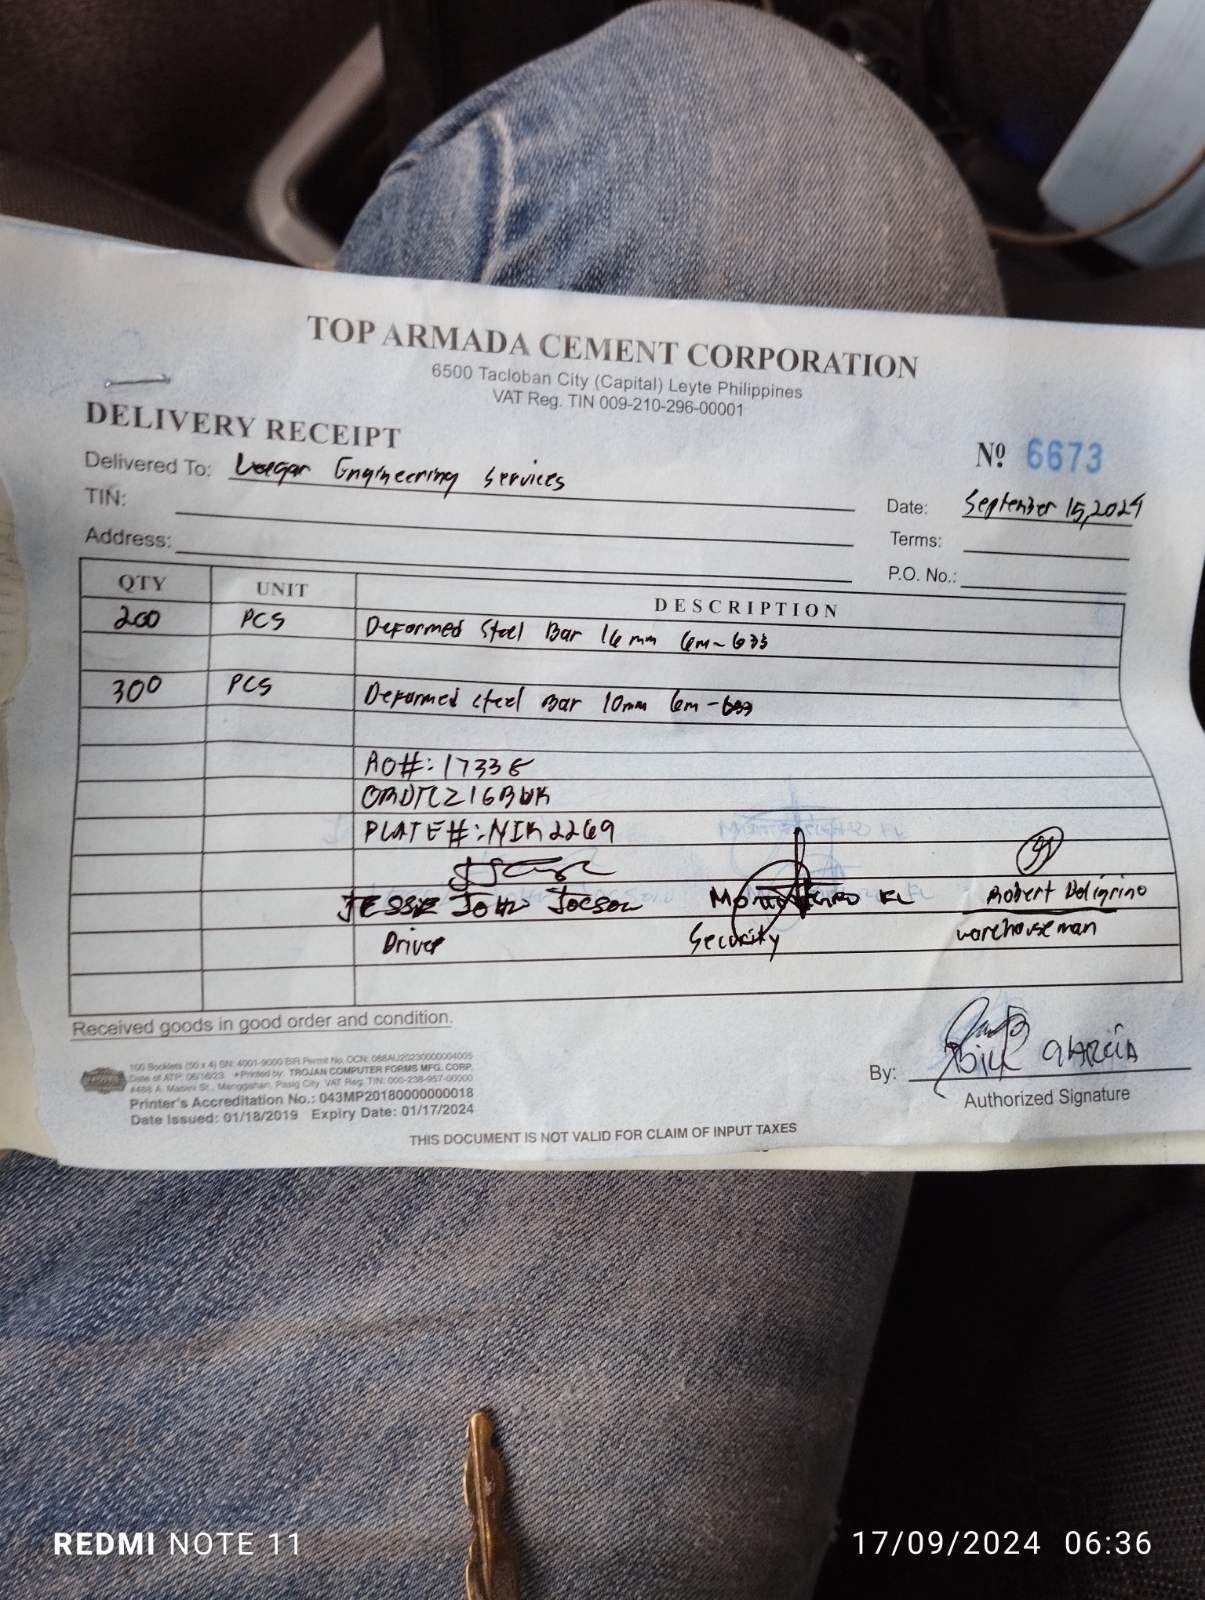 TOP ARMADA CEMENT CORPORATION
6500 Tacloban City (Capital) Leyte Philippines
VAT Reg. TIN 009-210-296-00001
DELIVERY RECEIPT
Nº 6673
Delivered To: Engineering Services
TIN:
Date: September 15, 2024
Address:
Terms:
P.O. No.:
QTY UNIT DESCRIPTION
200 PCS Deformed Steel Bar 16mm 6m-G33
300 PCS Deformed Steel Bar 10mm 6m-
AO#: 17335
PLATE#: NIK 2269
JESSIE JOHN JOCSON
Robert Deligrino
Driver Security warehouseman
Received goods in good order and condition.
100 Booklets (50 x 4) SN: 4001-9000 BIR Permit No. OCN: 088AU20230000004005
Date of ATP: 06/16/23 *Printed by: TROJAN COMPUTER FORMS MFG. CORP.
4488 A. Mabini St., Manggahan, Pasig City VAT Reg. TIN: 000-238-957-00000
Printer's Accreditation No.: 043MP20180000000018
Date Issued: 01/18/2019 Expiry Date: 01/17/2024
By: GARCIA
Authorized Signature
THIS DOCUMENT IS NOT VALID FOR CLAIM OF INPUT TAXES
REDMI NOTE 11
17/09/2024 06:36